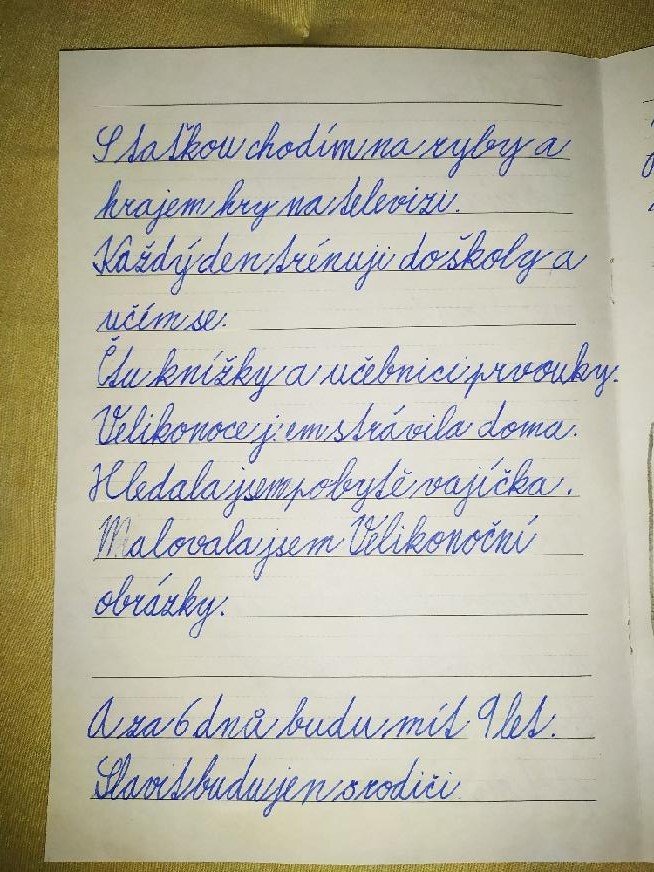 S taťkou chodím na ryby a
hrajem hry na televizi.
Každý den trénuji do školy a
učím se.
Čtu knížky a učebnici prvouky.
Velikonoce jem strávila doma.
Hledala jsem po bytě vajíčka.
Malovala jsem Velikonoční
obrázky.
A za 6 dnů budu mít 9 let.
Slavit budu jen s rodiči